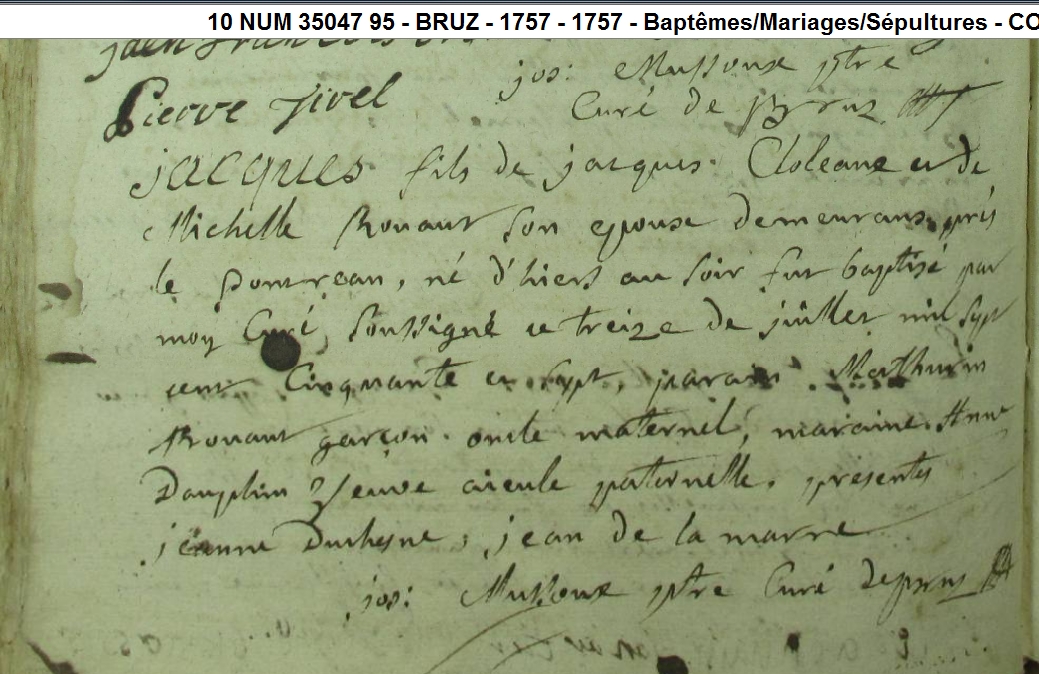 10 NUM 35047 95 - BRUZ - 1757 - 1757 - Baptêmes/Mariages/Sépultures - CO
jos: Mussoux ptre
Pierre Jivel
Curé de Bruz
JACQUES fils de jacques Cloleane et de
Michelle Rouaut son epouse demeurans près
le pontrean, né d'hiers au soir fut baptisé par
moy Curé soussigné ce treize de juillet mil sept
cent Cinquante et sept, parain Mathurin
Rouaut garçon oncle maternel, maraine Anne
Dauphin Veuve aieule paternelle, présents
jeanne Duchesne, jean de la marre
jos: Mussoux ptre Curé de Bruz